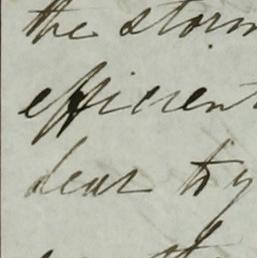 the storm
efficient
dear